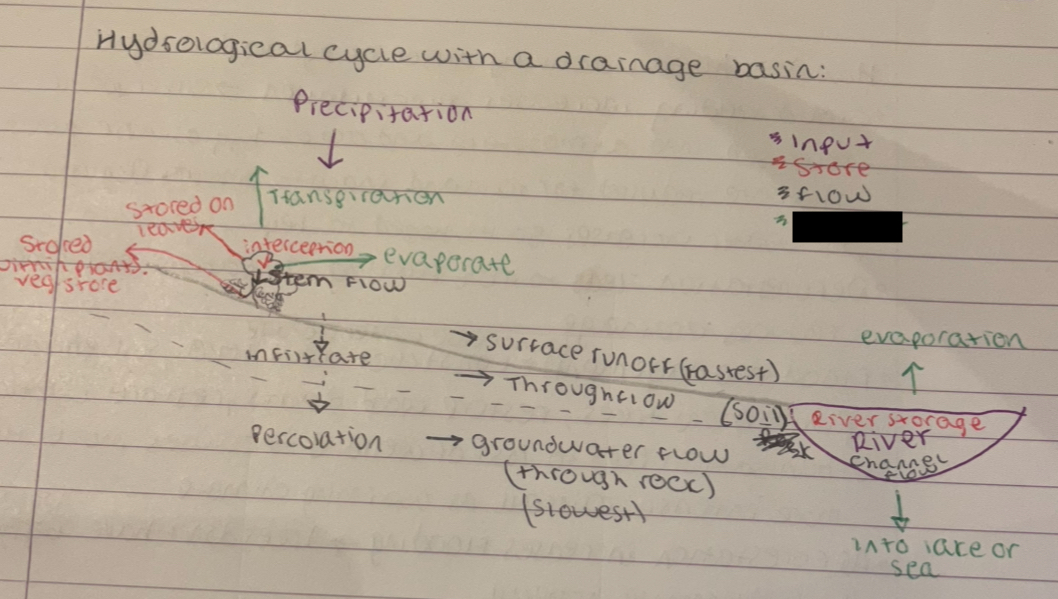 Hydrological cycle with a drainage basin:
Precipitation
* Input
* Store
* flow
*
Transpiration
Stored on
leaves
interception
evaporate
Stored
plants.
veg store
Stem flow
infiltrate
surface runoff (fastest)
Throughflow
(soil)
evaporation
River storage
River
channel
flow
Percolation
groundwater flow
(through rock)
(slowest)
into lake or
sea